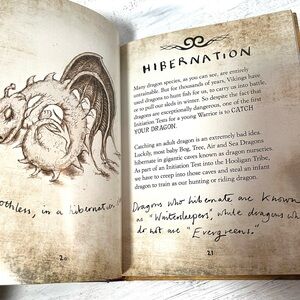 othless, in a hibernation
20
HIBERNATION
Many dragon species, as you can see, are entirely
untrainable. But for thousands of years, Vikings have
used dragons to hunt fish for us, to carry us into battle,
or to pull our sleds in winter. So despite the fact that
dragons are exceptionally dangerous, one of the first
Initiation Tests for a young Warrior is to CATCH
YOUR DRAGON.
Catching an adult dragon is an extremely bad idea.
Luckily, most baby Bog, Tree, Air and Sea Dragons
hibernate in gigantic caves known as dragon nurseries.
As part of an Initiation Test into the Hooligan Tribe,
we have to creep into those caves and steal an infant
dragon to train as our hunting or riding dragon.
Dragons who hibernate are known
as "Wintersleepers", while dragons wh
do not are "Evergreens."
21